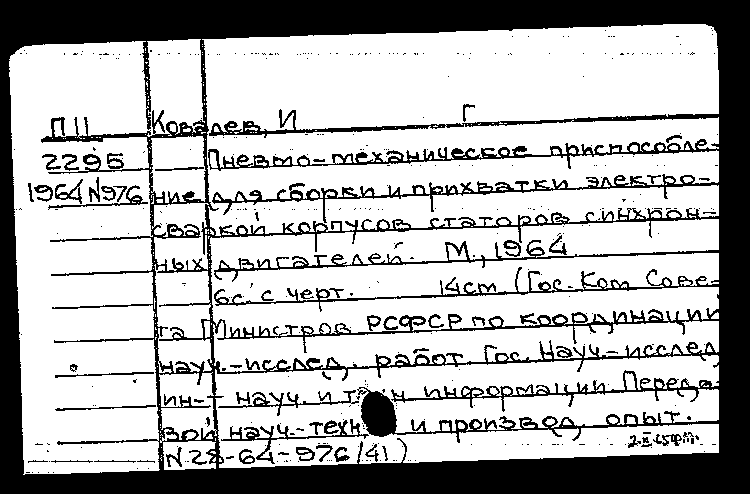 П11 Ковалев, И Г
2295 Пневмо-механическое приспособле-
1964 N976 ние для сборки и прихватки электро-
сваркой корпусов статоров синхрон-
ных двигателей. М., 1964
6с. с черт. 14cm (Гос. Ком Сове-
та Министров РСФСР по координации
науч.-исслед. работ Гос. Науч.-исслед
ин-т науч. и техн информации Передо-
вой науч.-техн и производ. опыт.
N 28-64-976/41)